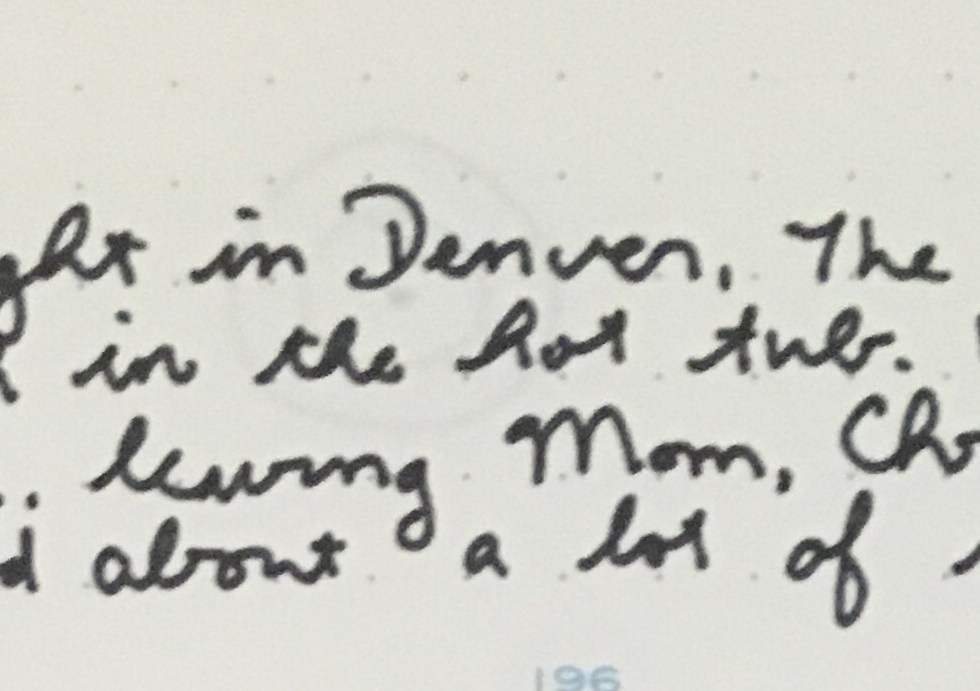 ght in Denver, The
in the hot tub.
.. leaving Mom, Cho
d about a lot of
196